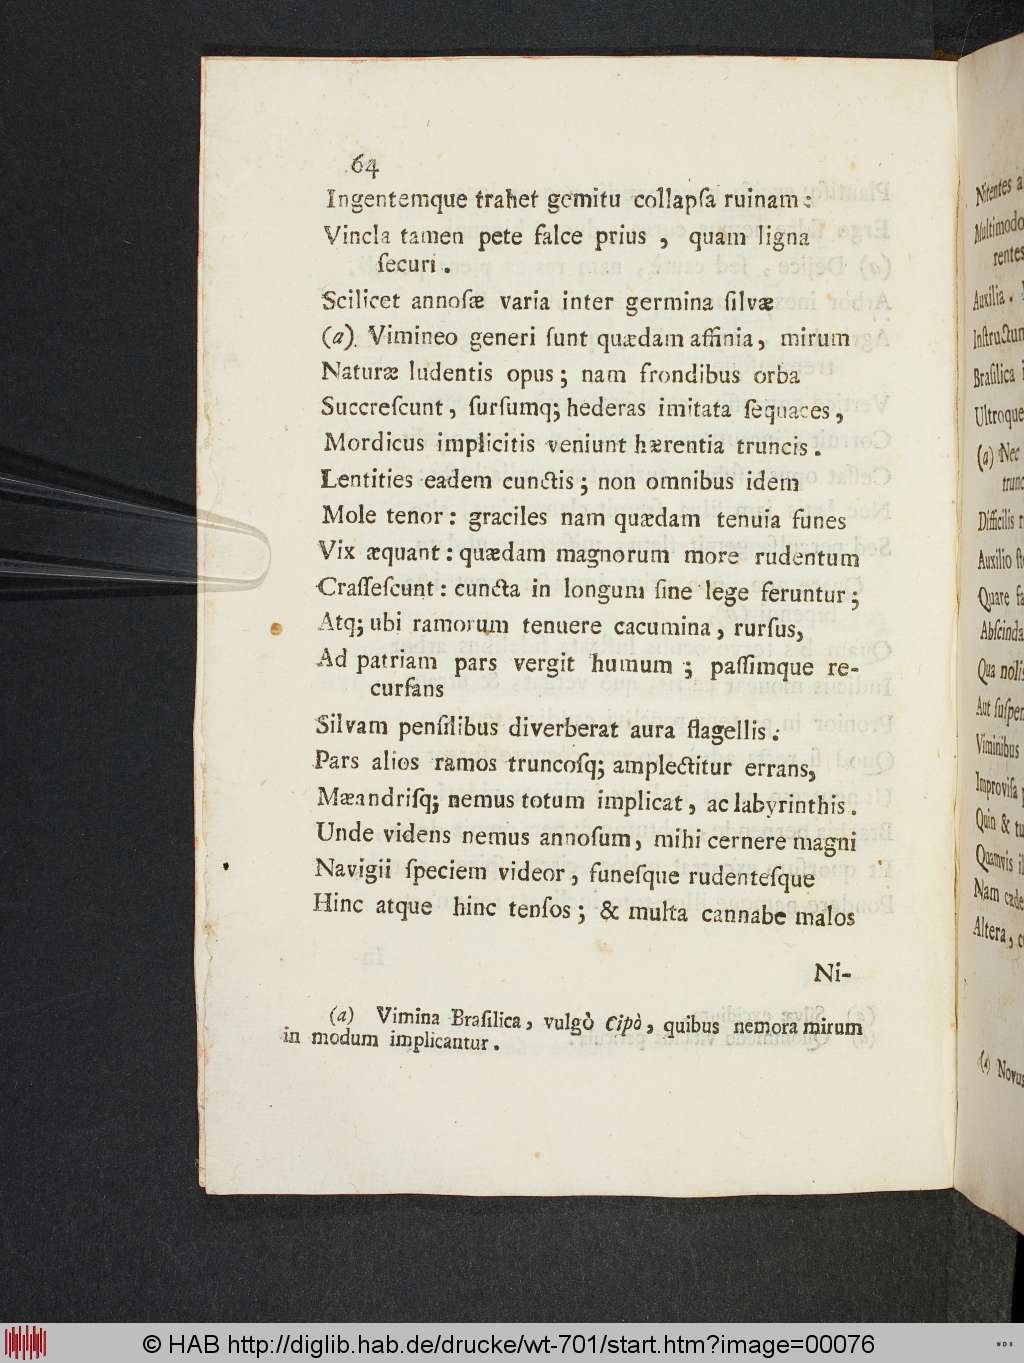 64
Ingentemque trahet gemitu collapſa ruinam:
Vincla tamen pete falce prius , quam ligna
ſecuri .
Scilicet annoſæ varia inter germina ſilvæ
(a). Vimineo generi ſunt quædam affinia, mirum
Naturæ ludentis opus ; nam frondibus orba
Succreſcunt , ſurſumq; hederas imitata ſequaces ,
Mordicus implicitis veniunt hærentia truncis .
Lentities eadem cunctis ; non omnibus idem
Mole tenor : graciles nam quædam tenuia funes
Vix æquant : quædam magnorum more rudentum
Craſſeſcunt : cuncta in longum ſine lege feruntur ;
Atq; ubi ramorum tenuere cacumina , rurſus,
Ad patriam pars vergit humum ; paſſimque re-
curſans
Silvam penſilibus diverberat aura flagellis :
Pars alios ramos truncoſq; amplectitur errans,
Mæandriſq; nemus totum implicat , ac labyrinthis .
Unde videns nemus annoſum , mihi cernere magni
Navigii ſpeciem videor , funeſque rudenteſque
Hinc atque hinc tenſos ; & multa cannabe malos
Ni-
(a) Vimina Braſilica , vulgò Cipò , quibus nemora mirum
in modum implicantur .
Nitentes a
Multimodo
rentes
Auxilia .
Inſtructum
Braſilica
Ultroque
(a) Nec
trunc
Difficilis
Auxilio
Quare fa
Abſcinda
Qua nolis
Aut ſuſpen
Viminibus
Improviſa
Quin & tu
Quamvis il
Nam cade
Altera , c
(a) Novus
© HAB http://diglib.hab.de/drucke/wt-701/start.htm?image=00076